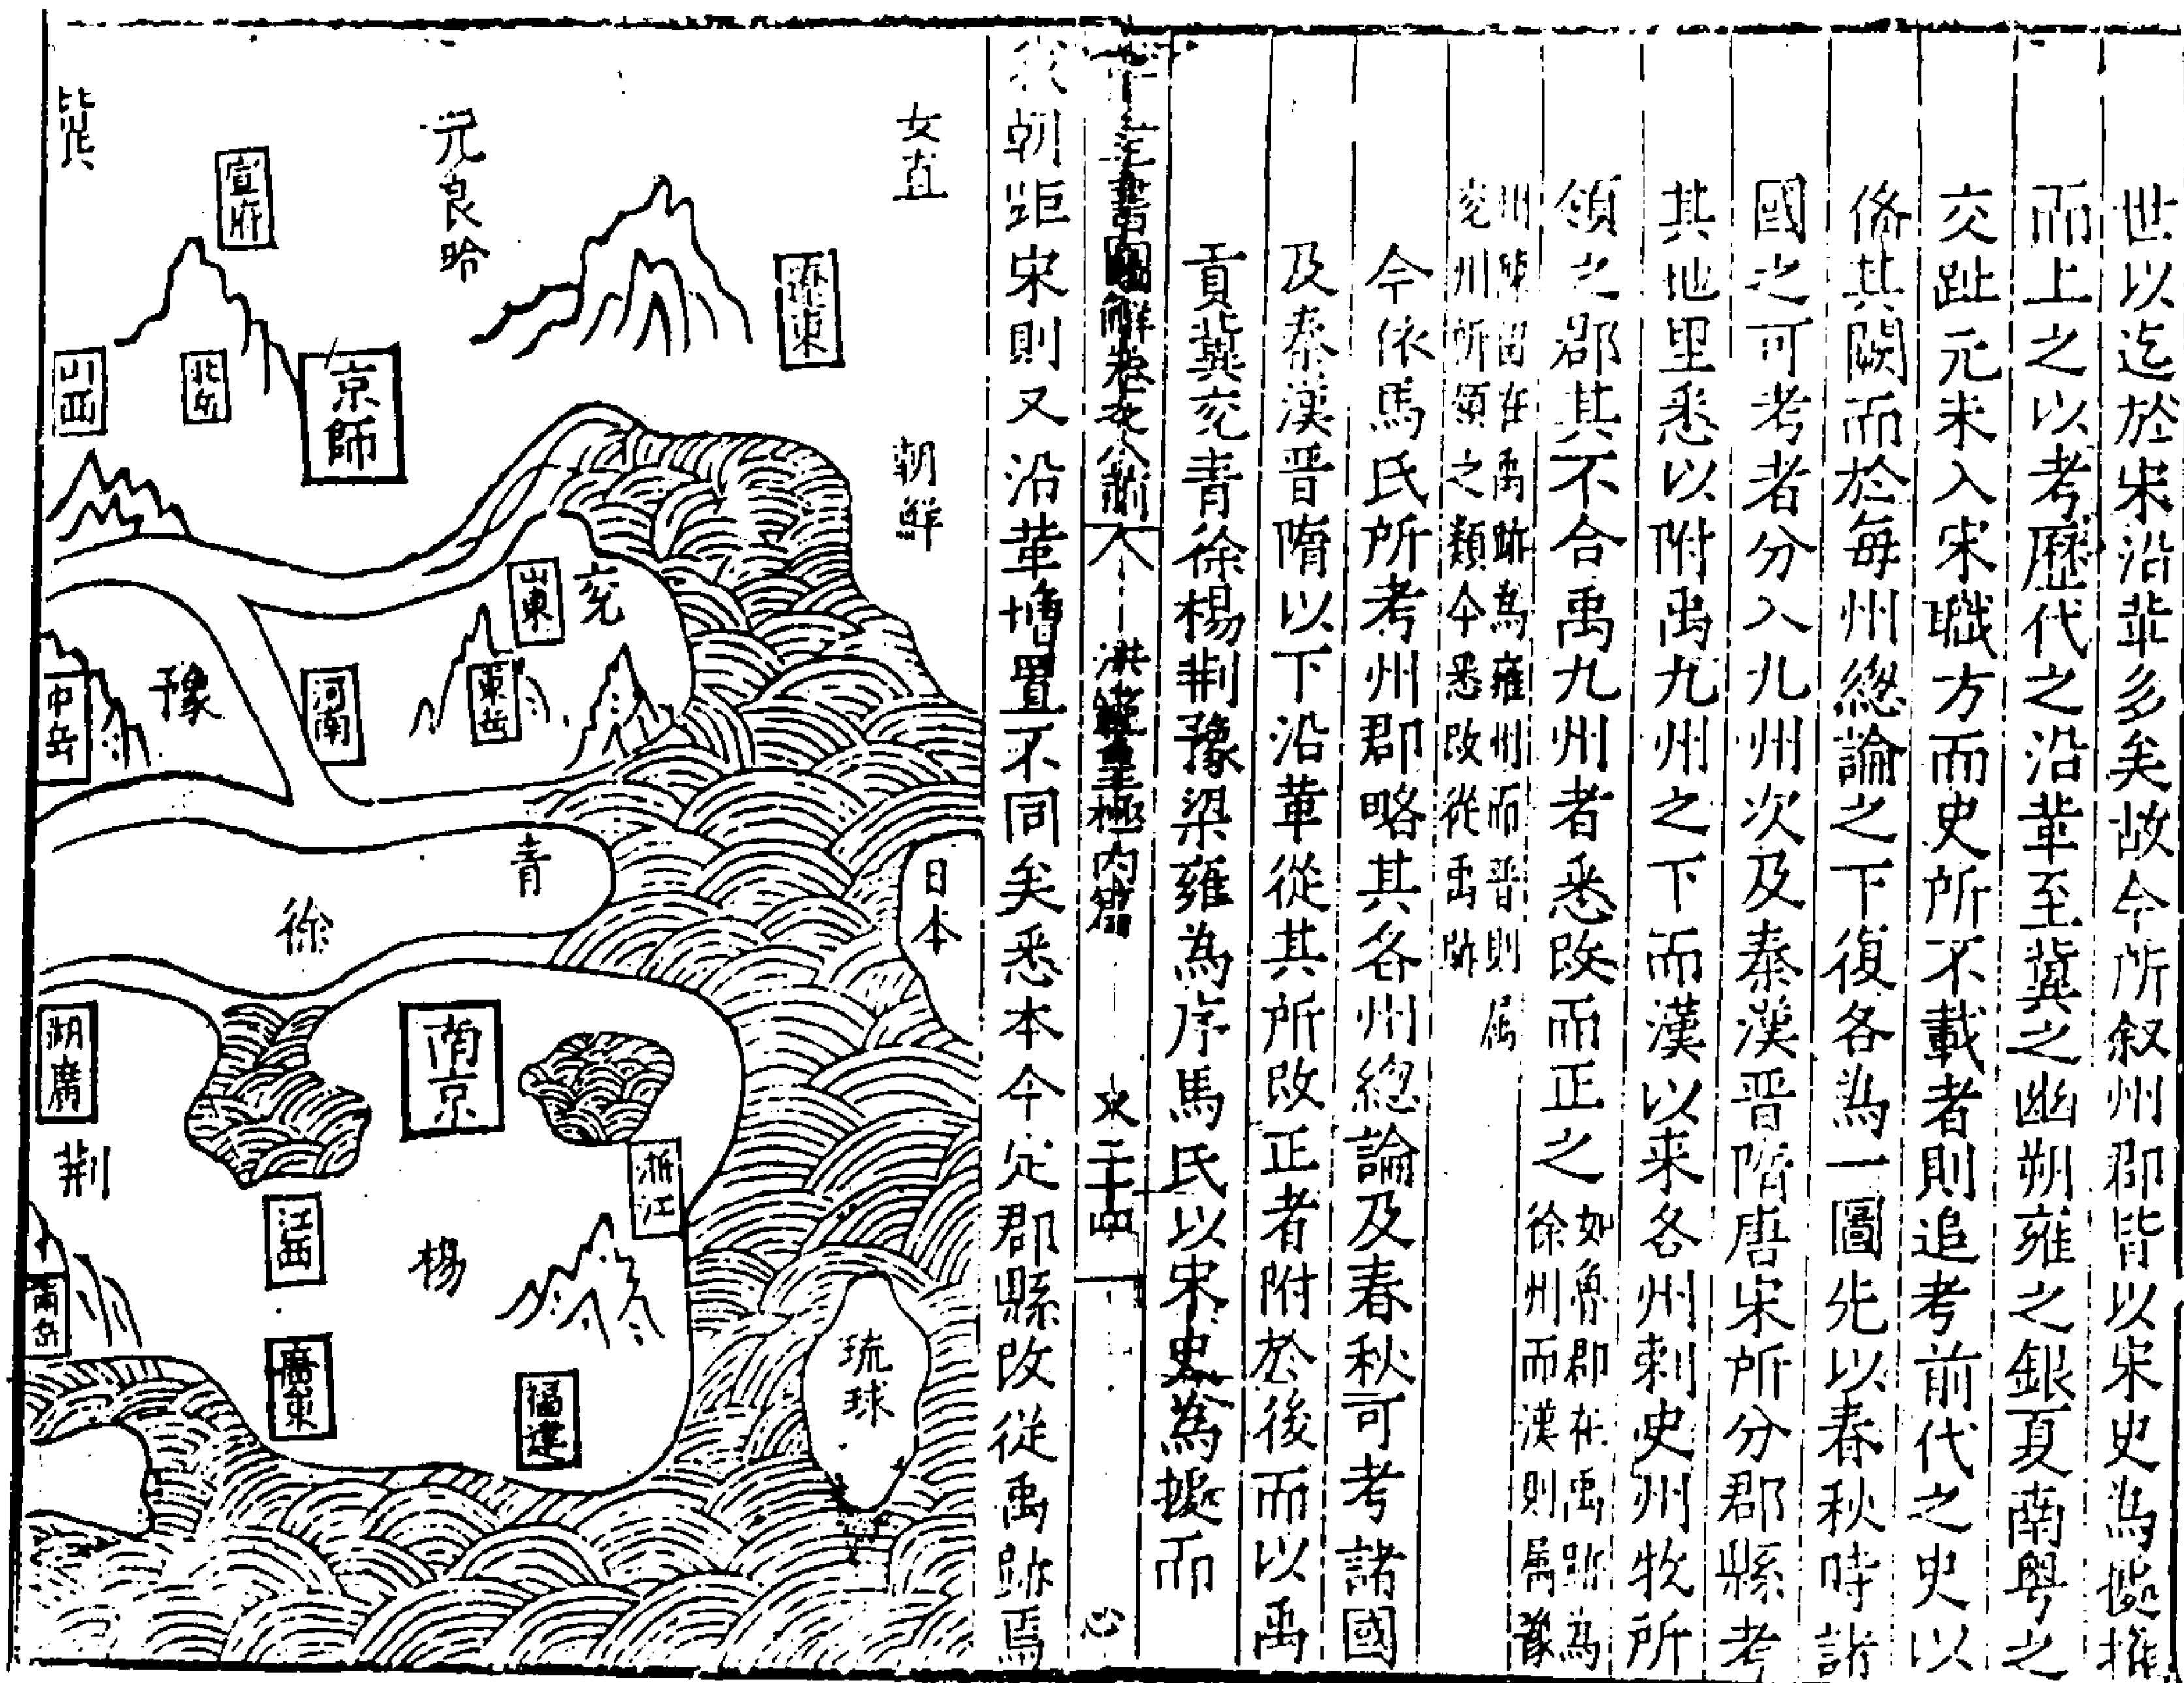 世以迄於宋沿革多矣故今所叙州郡皆以宋史為據推
而上之以考歷代之沿革至冀之幽朔雍之銀夏南粤之
交趾元未入宋職方而史所不載者則追考前代之史以
俻其闕而於每州緫論之下復各為一圖先以春秋時諸
國之可考者分入九州次及秦漢晋隋唐宋所分郡縣考
其地里悉以附禹九州之下而漢以来各州刺史州牧所
領之郡其不合禹九州者悉改而正之
如魯郡在禹跡為
徐州而漢則属豫
州陳留在禹跡為雍州而晋則属
兖州所領之類今悉改從禹跡
今依馬氏所考州郡略其各州緫論及春秋可考諸國
及秦漢晋隋以下沿革從其所改正者附於後而以禹
貢冀兖青徐楊荆豫梁雍為序馬氏以宋史為據而
書圖解卷之八前
洪範皇極内篇
文二十四
我朝距宋則又沿革增置不同矣悉本今定郡縣改從禹跡焉
女直
遼東
朝鮮
日本
琉球
元良哈
宣府
京師
北岳
山西
冀
兖
山東
東岳
河南
豫
中岳
青
徐
南京
浙江
湖廣
荆
江西
楊
南岳
廣東
福建